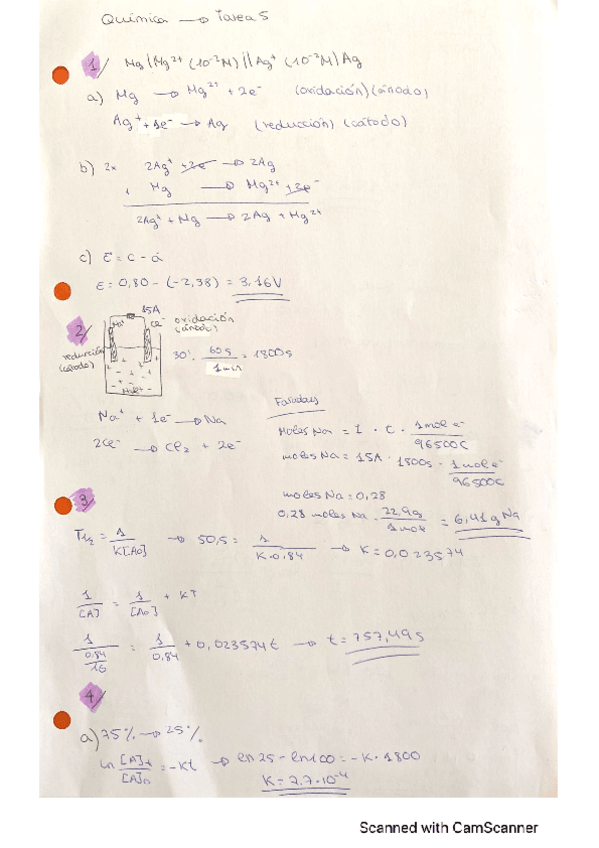 Química → Tarea 5
1/ Mg|Mg²⁺ (10⁻²M)||Ag⁺ (10⁻²M)|Ag
a) Mg → Mg²⁺ + 2e⁻ (oxidación)(ánodo)
Ag⁺ + 1e⁻ → Ag (reducción) (cátodo)
b) 2x 2Ag⁺ + 2e⁻ → 2Ag
+ Mg → Mg²⁺ + 2e⁻
2Ag⁺ + Mg → 2Ag + Mg²⁺
c) E = c - á
E = 0,80 - (-2,38) = 3,16V
2/
15A
Cl⁻
oxidación
(ánodo)
reducción
(cátodo)
30' · 60s / 1min = 1800s
Na⁺ + 1e⁻ → Na
2Cl⁻ → Cl₂ + 2e⁻
Faradays
Moles Na = I · t · 1mol e⁻ / 96500C
moles Na = 15A · 1800s · 1mol e⁻ / 96500C
moles Na = 0,28
0,28 moles Na · 22,9g / 1mol = 6,41g Na
3
T½ = 1 / K[A₀] → 50,5 = 1 / K·0,84 → K = 0,023574
1 / [A] = 1 / [A₀] + KT
1 / (0,84 / 16) = 1 / 0,84 + 0,023574 t → t = 757,49 s
4/
a) 75% → 25%
ln [A]t / [A]₀ = -Kt → ln 25 - ln 100 = -K · 1800
K = 7,7 · 10⁻⁴
Scanned with CamScanner